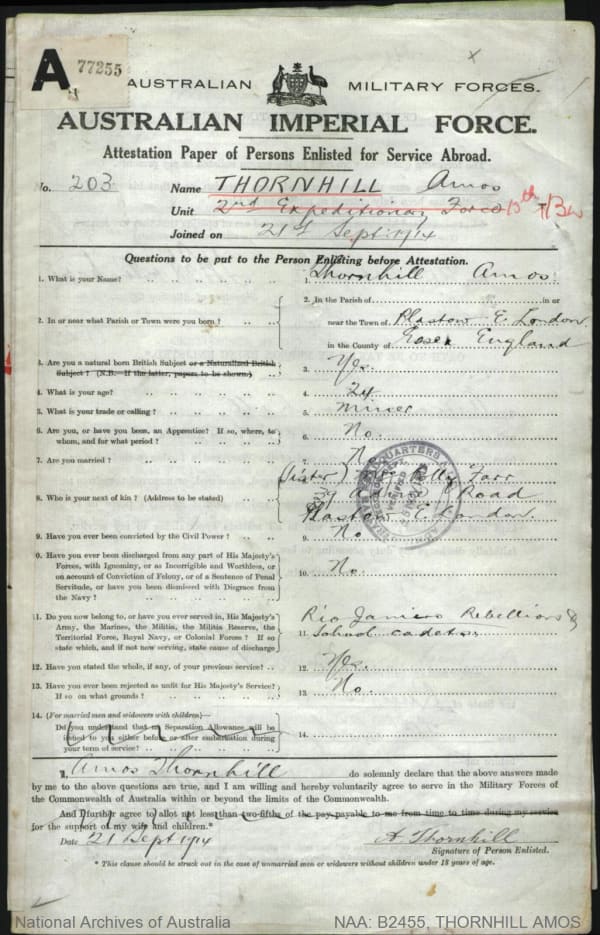 A 77255
AUSTRALIAN MILITARY FORCES.
AUSTRALIAN IMPERIAL FORCE.
Attestation Paper of Persons Enlisted for Service Abroad.
No. 203 Name THORNHILL Amos
Unit 2nd Expeditionary Force 15th
Joined on 21st Sept: 1914
Questions to be put to the Person Enlisting before Attestation.
1. What is your Name? 1. Thornhill Amos
2. In the Parish of in or
2. In or near what Parish or Town were you born? near the Town of Plastow E. London
in the County of Essex England
3. Are you a natural born British Subject or a Naturalized British
Subject? (N.B.—If the latter, papers to be shown) 3. Yes.
4. What is your age? 4. 24
5. What is your trade or calling? 5. Miner
6. Are you, or have you been, an Apprentice? If so, where, to
whom, and for what period? 6. No.
7. Are you married? 7. No
(Sister) Polly Farr
8. Who is your next of kin? (Address to be stated) 8. Road
Plastow E. London.
9. Have you ever been convicted by the Civil Power? 9. No
0. Have you ever been discharged from any part of His Majesty's
Forces, with Ignominy, or as Incorrigible and Worthless, or
on account of Conviction of Felony, or of a Sentence of Penal
Servitude, or have you been dismissed with Disgrace from
the Navy? 10. No.
11. Do you now belong to, or have you ever served in, His Majesty's
Army, the Marines, the Militia, the Militia Reserve, the
Territorial Force, Royal Navy, or Colonial Forces? If so
state which, and if not now serving, state cause of discharge
Rio Janiero Rebellion &
11. School cadets.
12. Have you stated the whole, if any, of your previous service? 12. Yes.
13. Have you ever been rejected as unfit for His Majesty's Service?
If so on what grounds? 13. No.
14. (For married men and widowers with children)—
Do you understand that no Separation Allowance will be
issued to you either before or after embarkation during
your term of service? 14.
I, Amos Thornhill do solemnly declare that the above answers made
by me to the above questions are true, and I am willing and hereby voluntarily agree to serve in the Military Forces of
the Commonwealth of Australia within or beyond the limits of the Commonwealth.
And I further agree to allot not less than two-fifths of the pay payable to me from time to time during my service
for the support of my wife and children.*
Date 21 Sept 1914 A Thornhill
Signature of Person Enlisted.
* This clause should be struck out in the case of unmarried men or widowers without children under 18 years of age.
National Archives of Australia NAA: B2455, THORNHILL AMOS